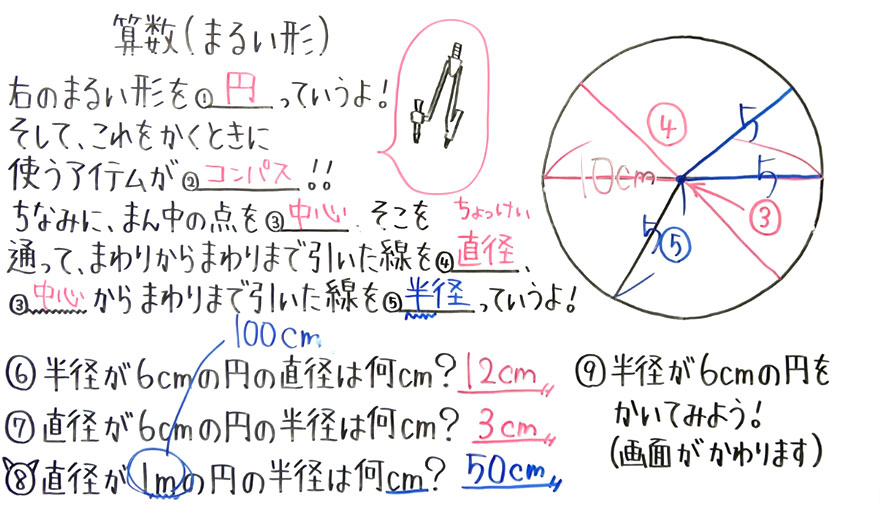 算数(まるい形)
右のまるい形を①円っていうよ!
そして、これをかくときに
使うアイテムが②コンパス!!
ちなみに、まん中の点を③中心 そこを
ちょっけい
通って、まわりからまわりまで引いた線を④直径、
③中心からまわりまで引いた線を⑤半径っていうよ!
④
5
10cm
5
③
5
⑤
100cm
⑥半径が6cmの円の直径は何cm?12cm
⑦直径が6cmの円の半径は何cm?3cm
⑧直径が1mの円の半径は何cm?50cm
⑨半径が6cmの円を
かいてみよう!
(画面がかわります)